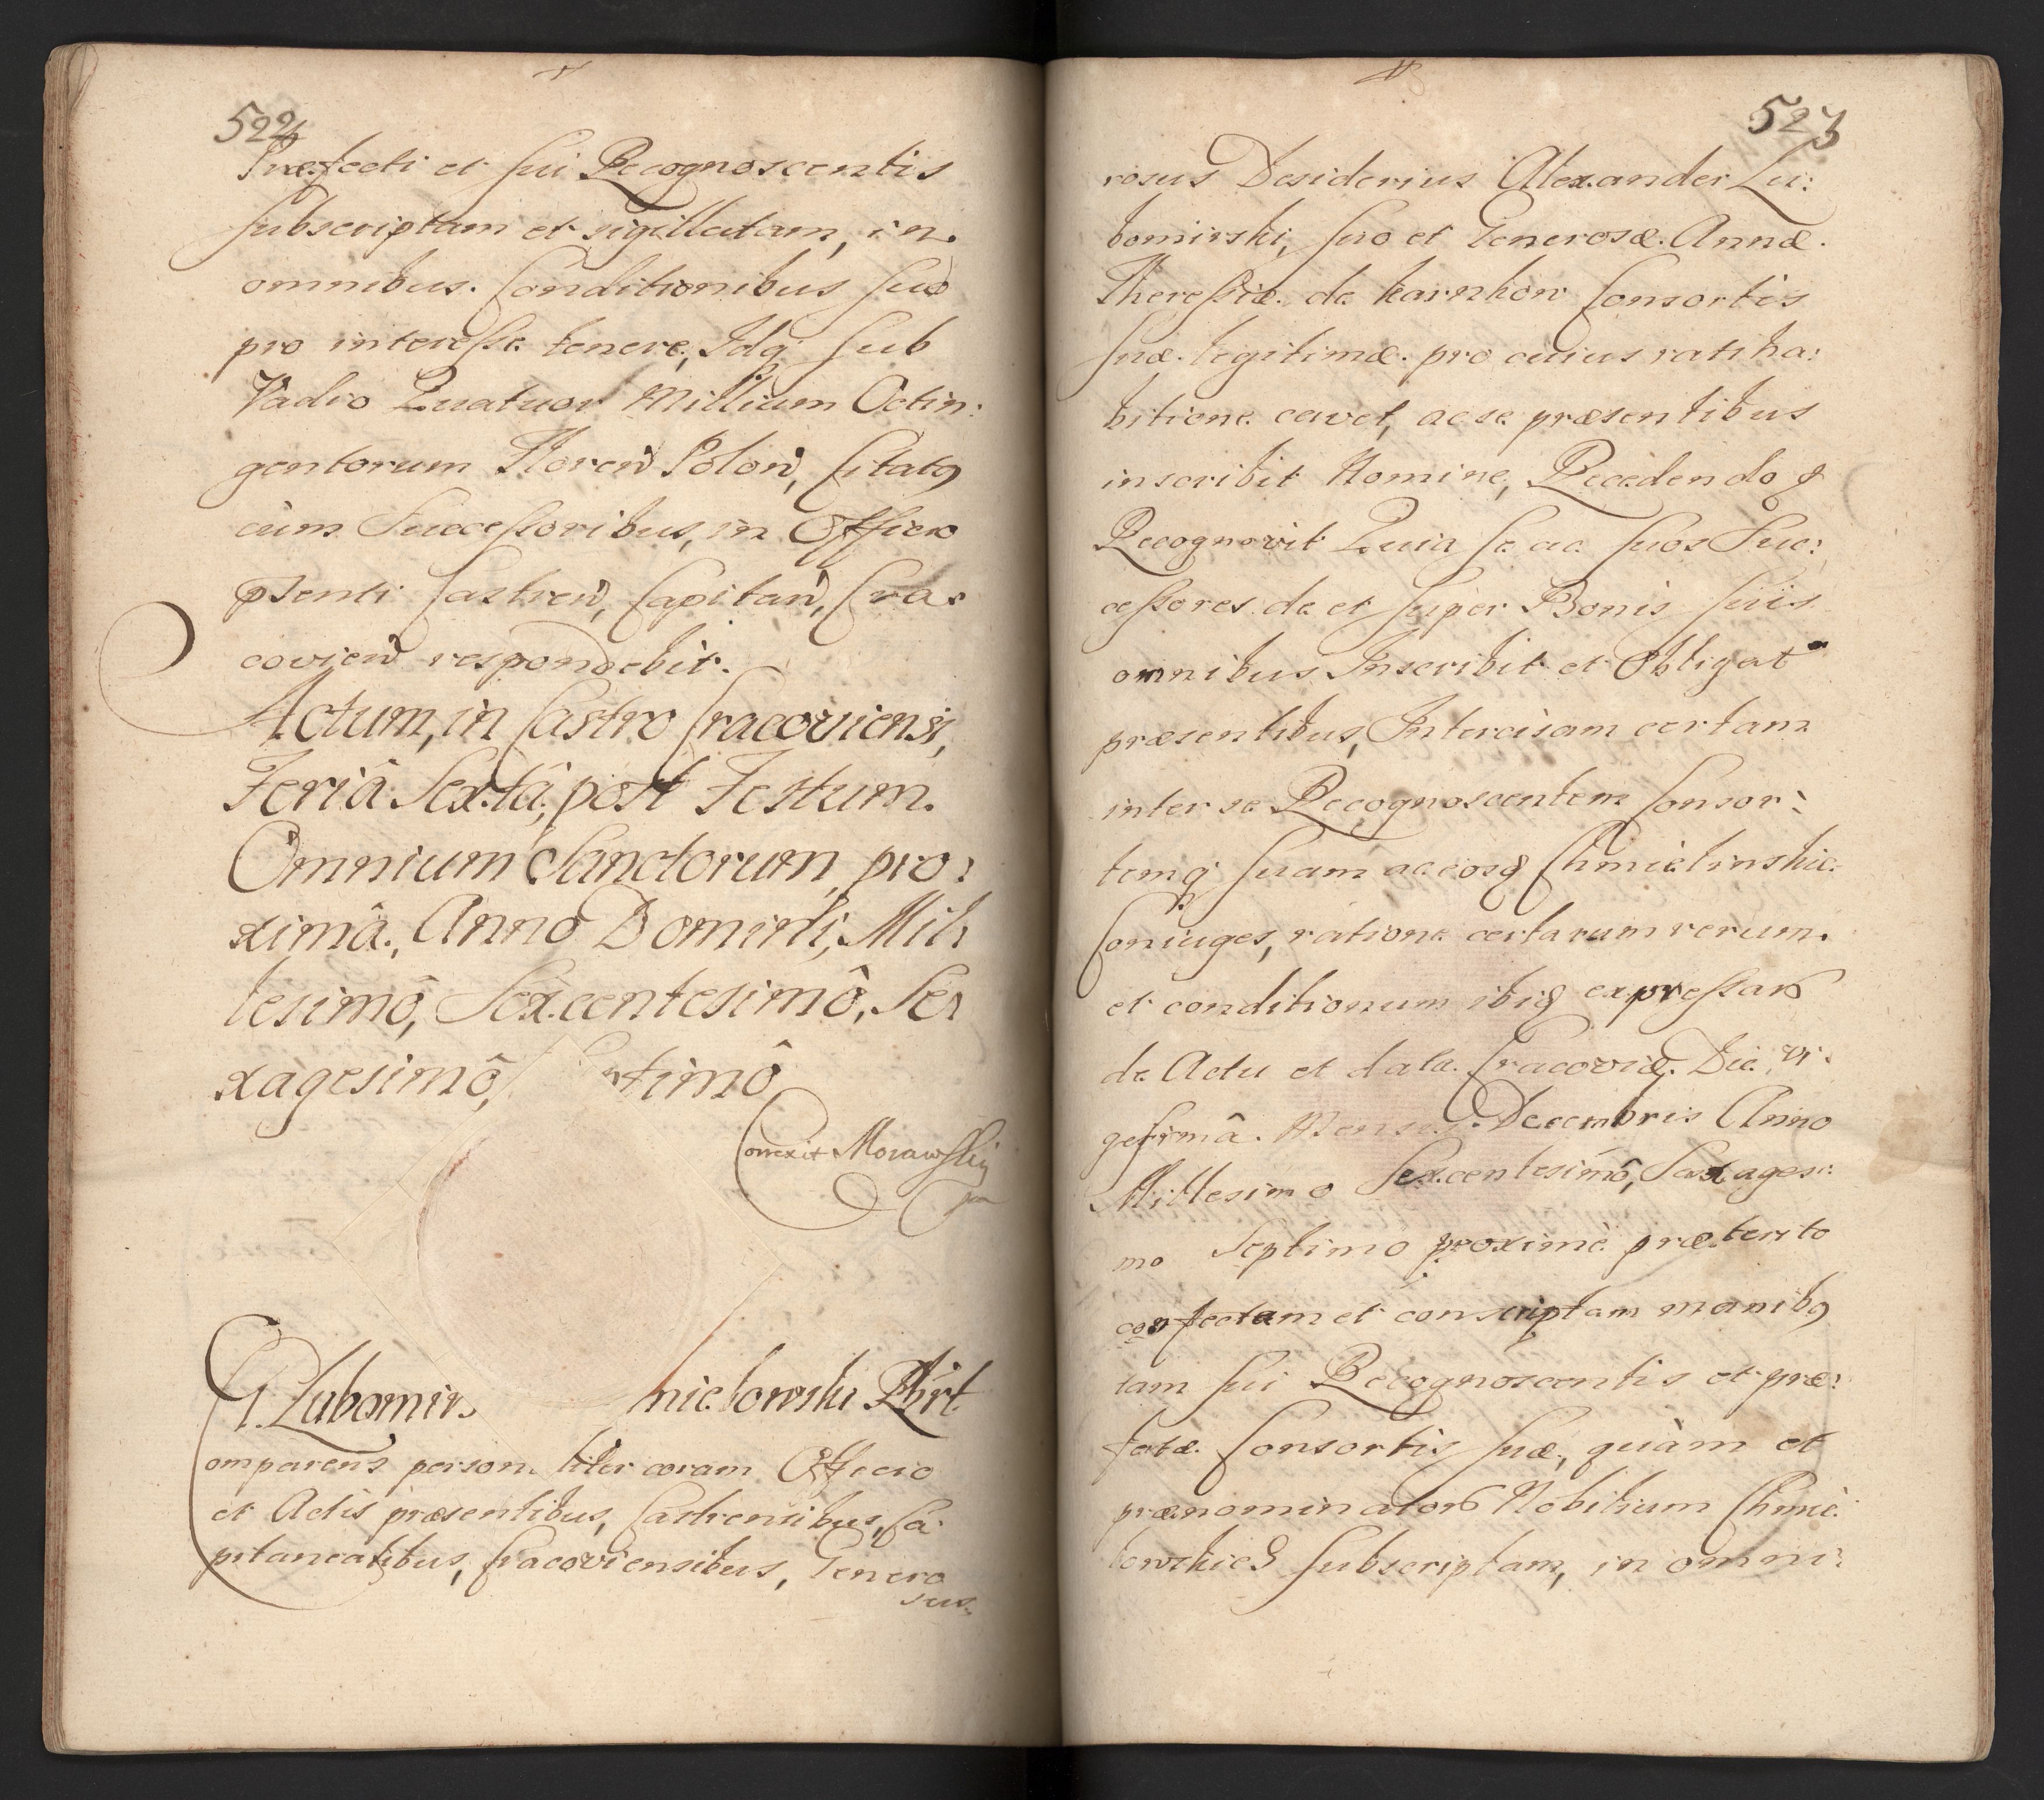 522
Præfecti et sui Recognoscentis
subscriptam et sigillatam, in
omnibus Conditionibus suo
pro interesse tenere, Idq; sub
Vadio Quatuor Millium Octin:
gentorum Floren Polon, Citatg
cum Successoribus, in Officio
pśenti Castren, Capitan, Cra:
covien respondebit.
Actum, in Castro Cracoviensi,
Feriâ Sextâ, post Festum
Omnium Sanctorum, pro:
ximâ, Anno Domini, Mil:
lesimô, Sexcentesimô, Se:
xagesimô, timô
Correxit Morawskj
G. Lubomir. nielowski Rhrt
Comparens person liter coram Officio
et Actis præsentibus, Castrensibus, Ca:
pitanealibus, Cracoviensibus, Genero
sus
523
rosus Desiderius Alexander Lu:
bomirski, suo et Generosæ Annæ
Theressiæ de Karnkow Consortis
suæ legitimæ pro cuius ratiha:
bitione cavet, ac se præsentibus
inscribit Nomine, Recedendo &
Recognovit Quia se ac suos Suc:
cessores de et super Bonis suis
omnibus Inscribit et Obligat
præsentibus, Intercisam certam
inter se Recognoscentem Consor:
temq; suam ac eosg Chmielinskie
Coniuges, ratione certarum rerum
et conditionum ibig expressar
de Actu et data Cracoviæ Die vi:
gesimâ Mensis Decembris Anno
Millesimo Sexcentesimô, Sexagesi:
mo Septimo proximè præterito
confectam et conscriptam manibg
tam sui Recognoscentis et præ:
fatæ Consortis suæ, quàm et
prænominator Nobilium Chmie:
lowskich subscriptam, in omni: